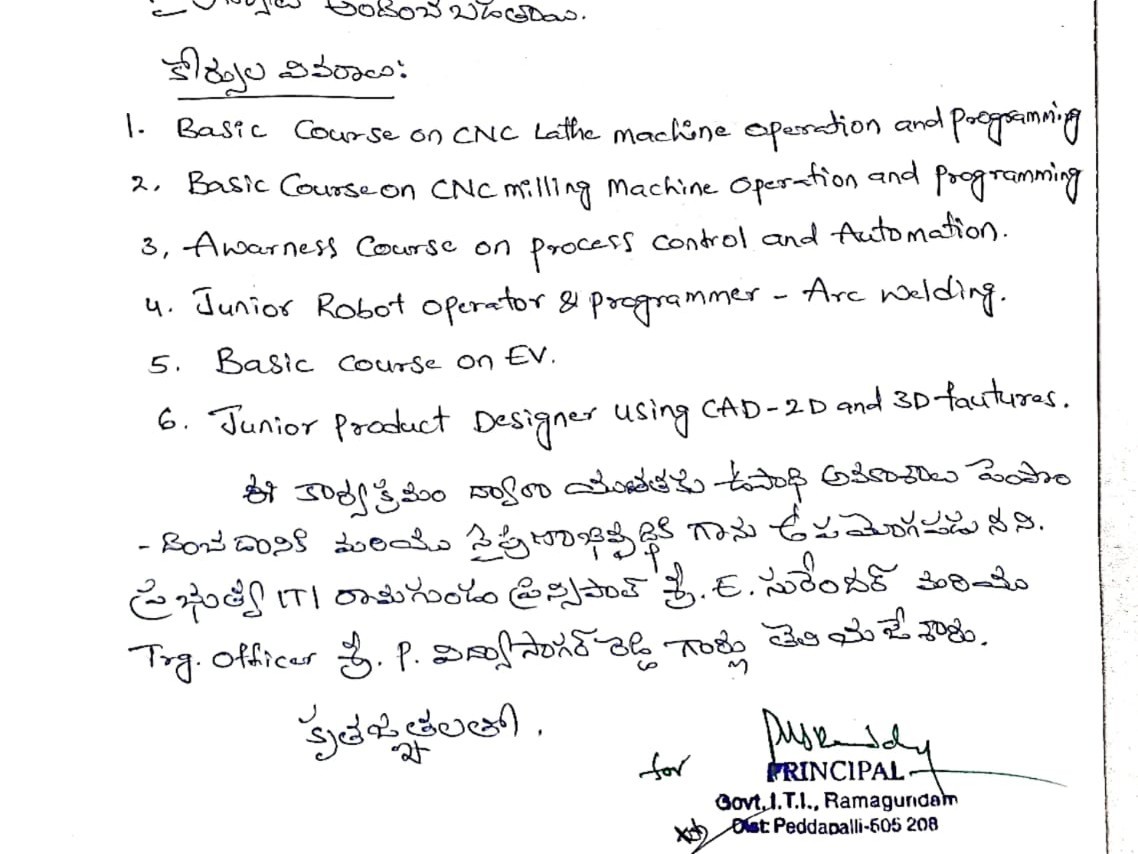 అందించబడతాయి.
కోర్సుల వివరాలు:
1. Basic Course on CNC Lathe machine operation and programming
2. Basic Course on CNC milling Machine operation and programming
3, Awarness Course on process control and Automation.
4. Junior Robot operator & programmer - Arc welding.
5. Basic course on EV.
6. Junior Product Designer using CAD-2D and 3D fautures.
ఈ కార్యక్రమం ద్వారా యువతకు ఉపాధి అవకాశాలు పెంపొం
- దించడానికి మరియు నైపుణ్యాభివృద్ధికి గాను ఉపయోగపడునని.
ప్రభుత్వ ITI రామగుండం ప్రిన్సిపాల్ శ్రీ. E. సురేందర్ మరియు
Trg. Officer శ్రీ. P. విద్యాసాగర్ రెడ్డి గార్లు తెలియజేశారు.
కృతజ్ఞతలతో.
for
PRINCIPAL
Govt. I.T.I., Ramagundam
Dist: Peddapalli-505 208